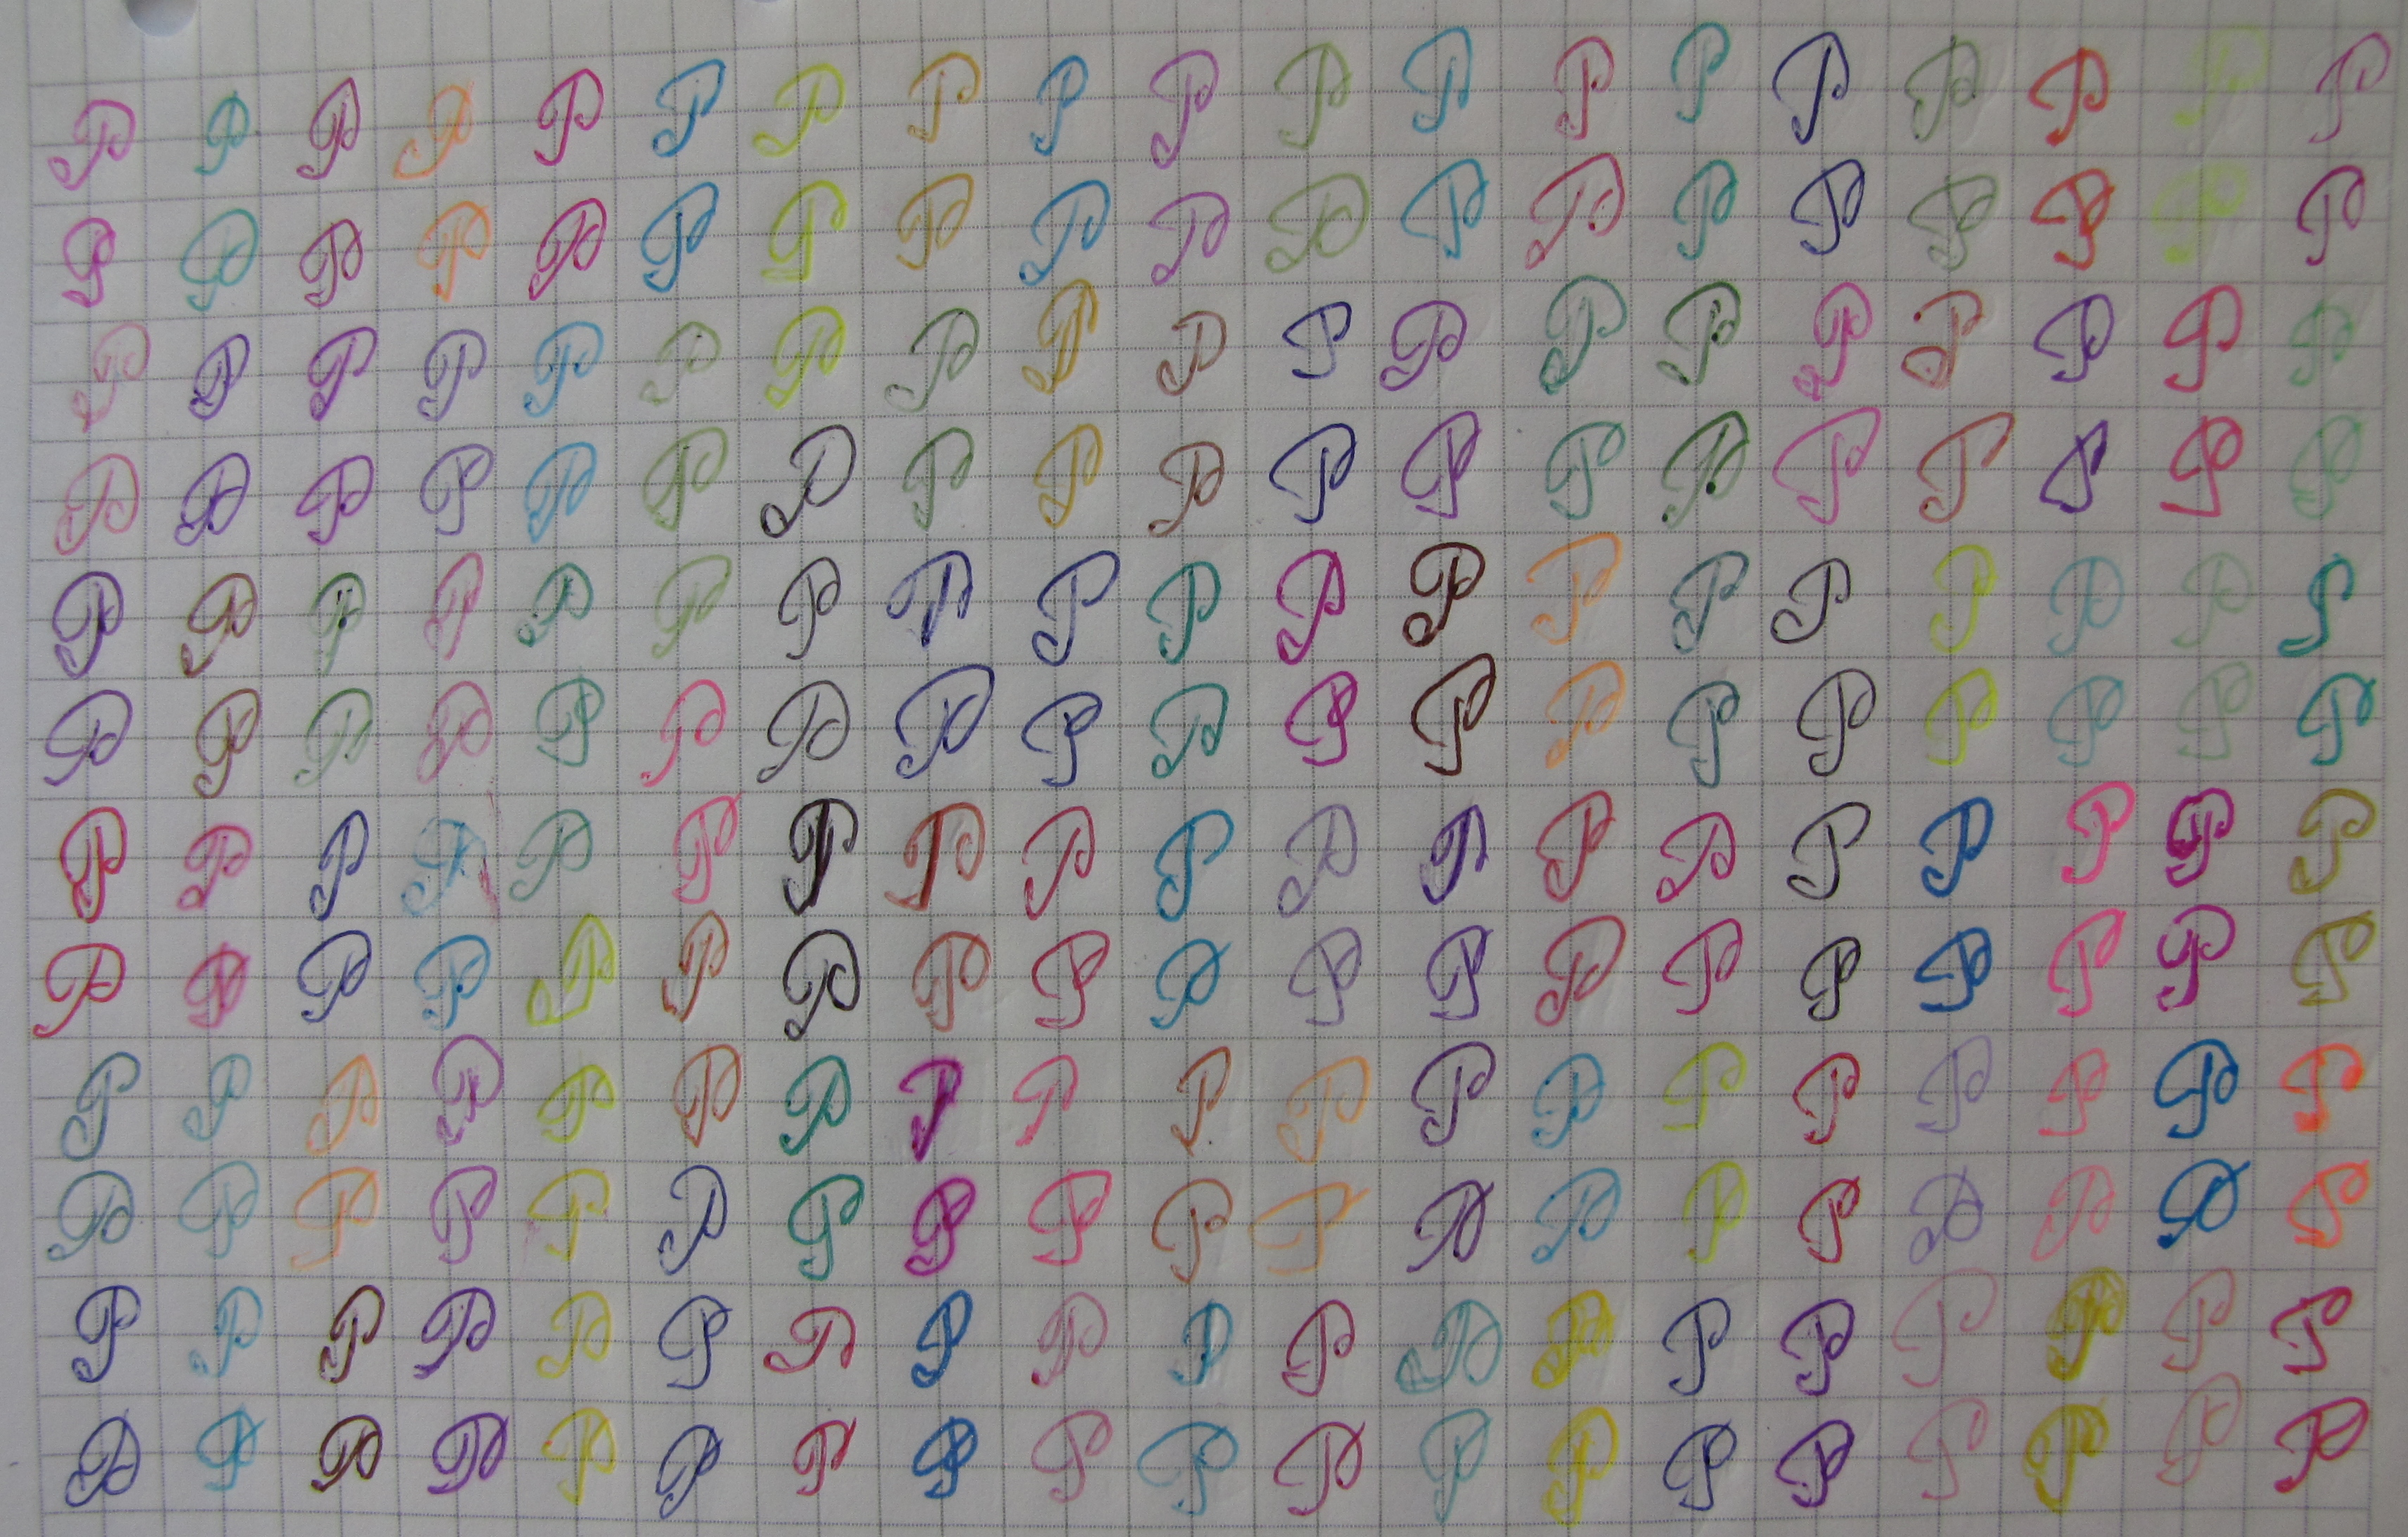 P P P P P P P P P P P P P P P P P P P
P P P P P P P P P P P P P P P P P P P
P P P P P P P P P P P P P P P P P P P
P P P P P P P P P P P P P P P P P P P
P P P P P P P P P P P P P P P P P P P
P P P P P P P P P P P P P P P P P P P
P P P P P P P P P P P P P P P P P P P
P P P P P P P P P P P P P P P P P P P
P P P P P P P P P P P P P P P P P P P
P P P P P P P P P P P P P P P P P P P
P P P P P P P P P P P P P P P P P P P
P P P P P P P P P P P P P P P P P P P